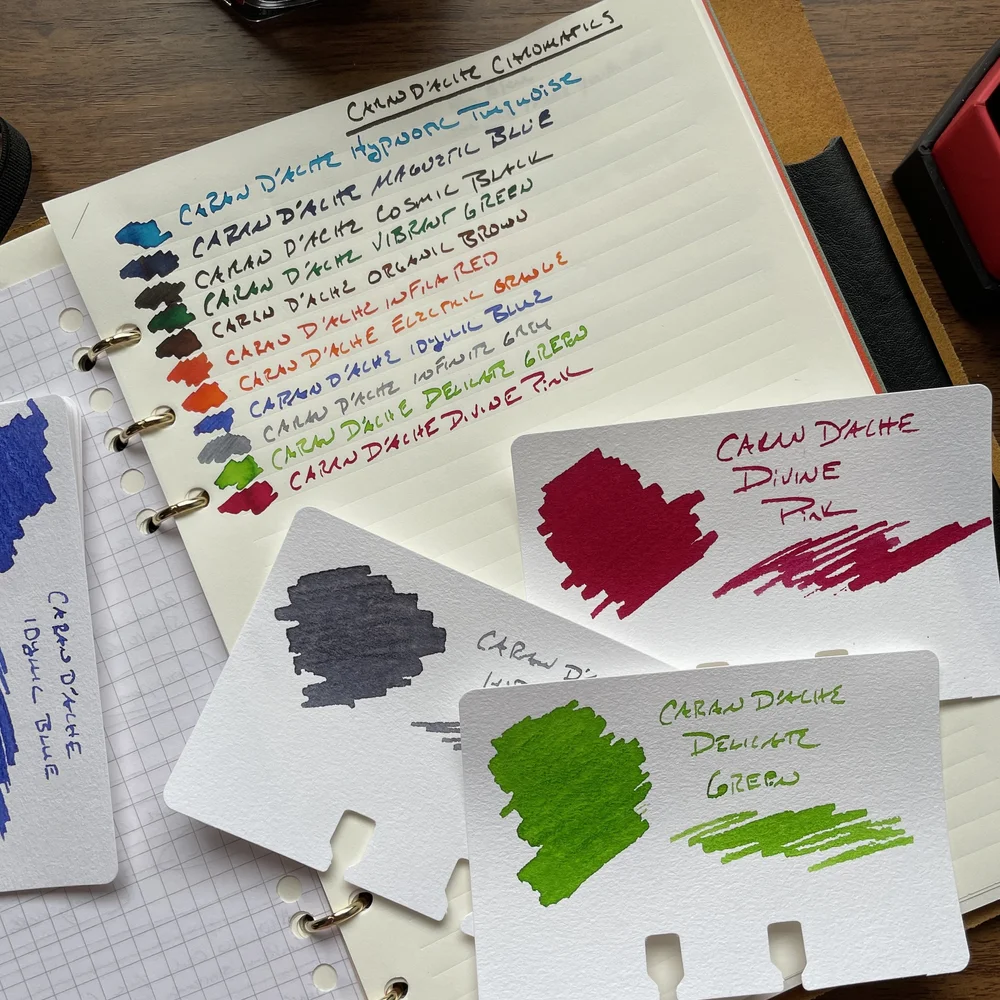 CARAN D'ACHE CHROMATICS
CARAN D'ACHE HYPNOTIC TURQUOISE
CARAN D'ACHE MAGNETIC BLUE
CARAN D'ACHE COSMIC BLACK
CARAN D'ACHE VIBRANT GREEN
CARAN D'ACHE ORGANIC BROWN
CARAN D'ACHE INFRA RED
CARAN D'ACHE ELECTRIC ORANGE
CARAN D'ACHE IDYLLIC BLUE
CARAN D'ACHE INFINITE GREY
CARAN D'ACHE DELICATE GREEN
CARAN D'ACHE DIVINE PINK
CARAN D'ACHE
DIVINE
PINK
CARAN D'ACHE
IDYLLIC BLUE
CARAN D'
CARAN D'ACHE
DELICATE
GREEN